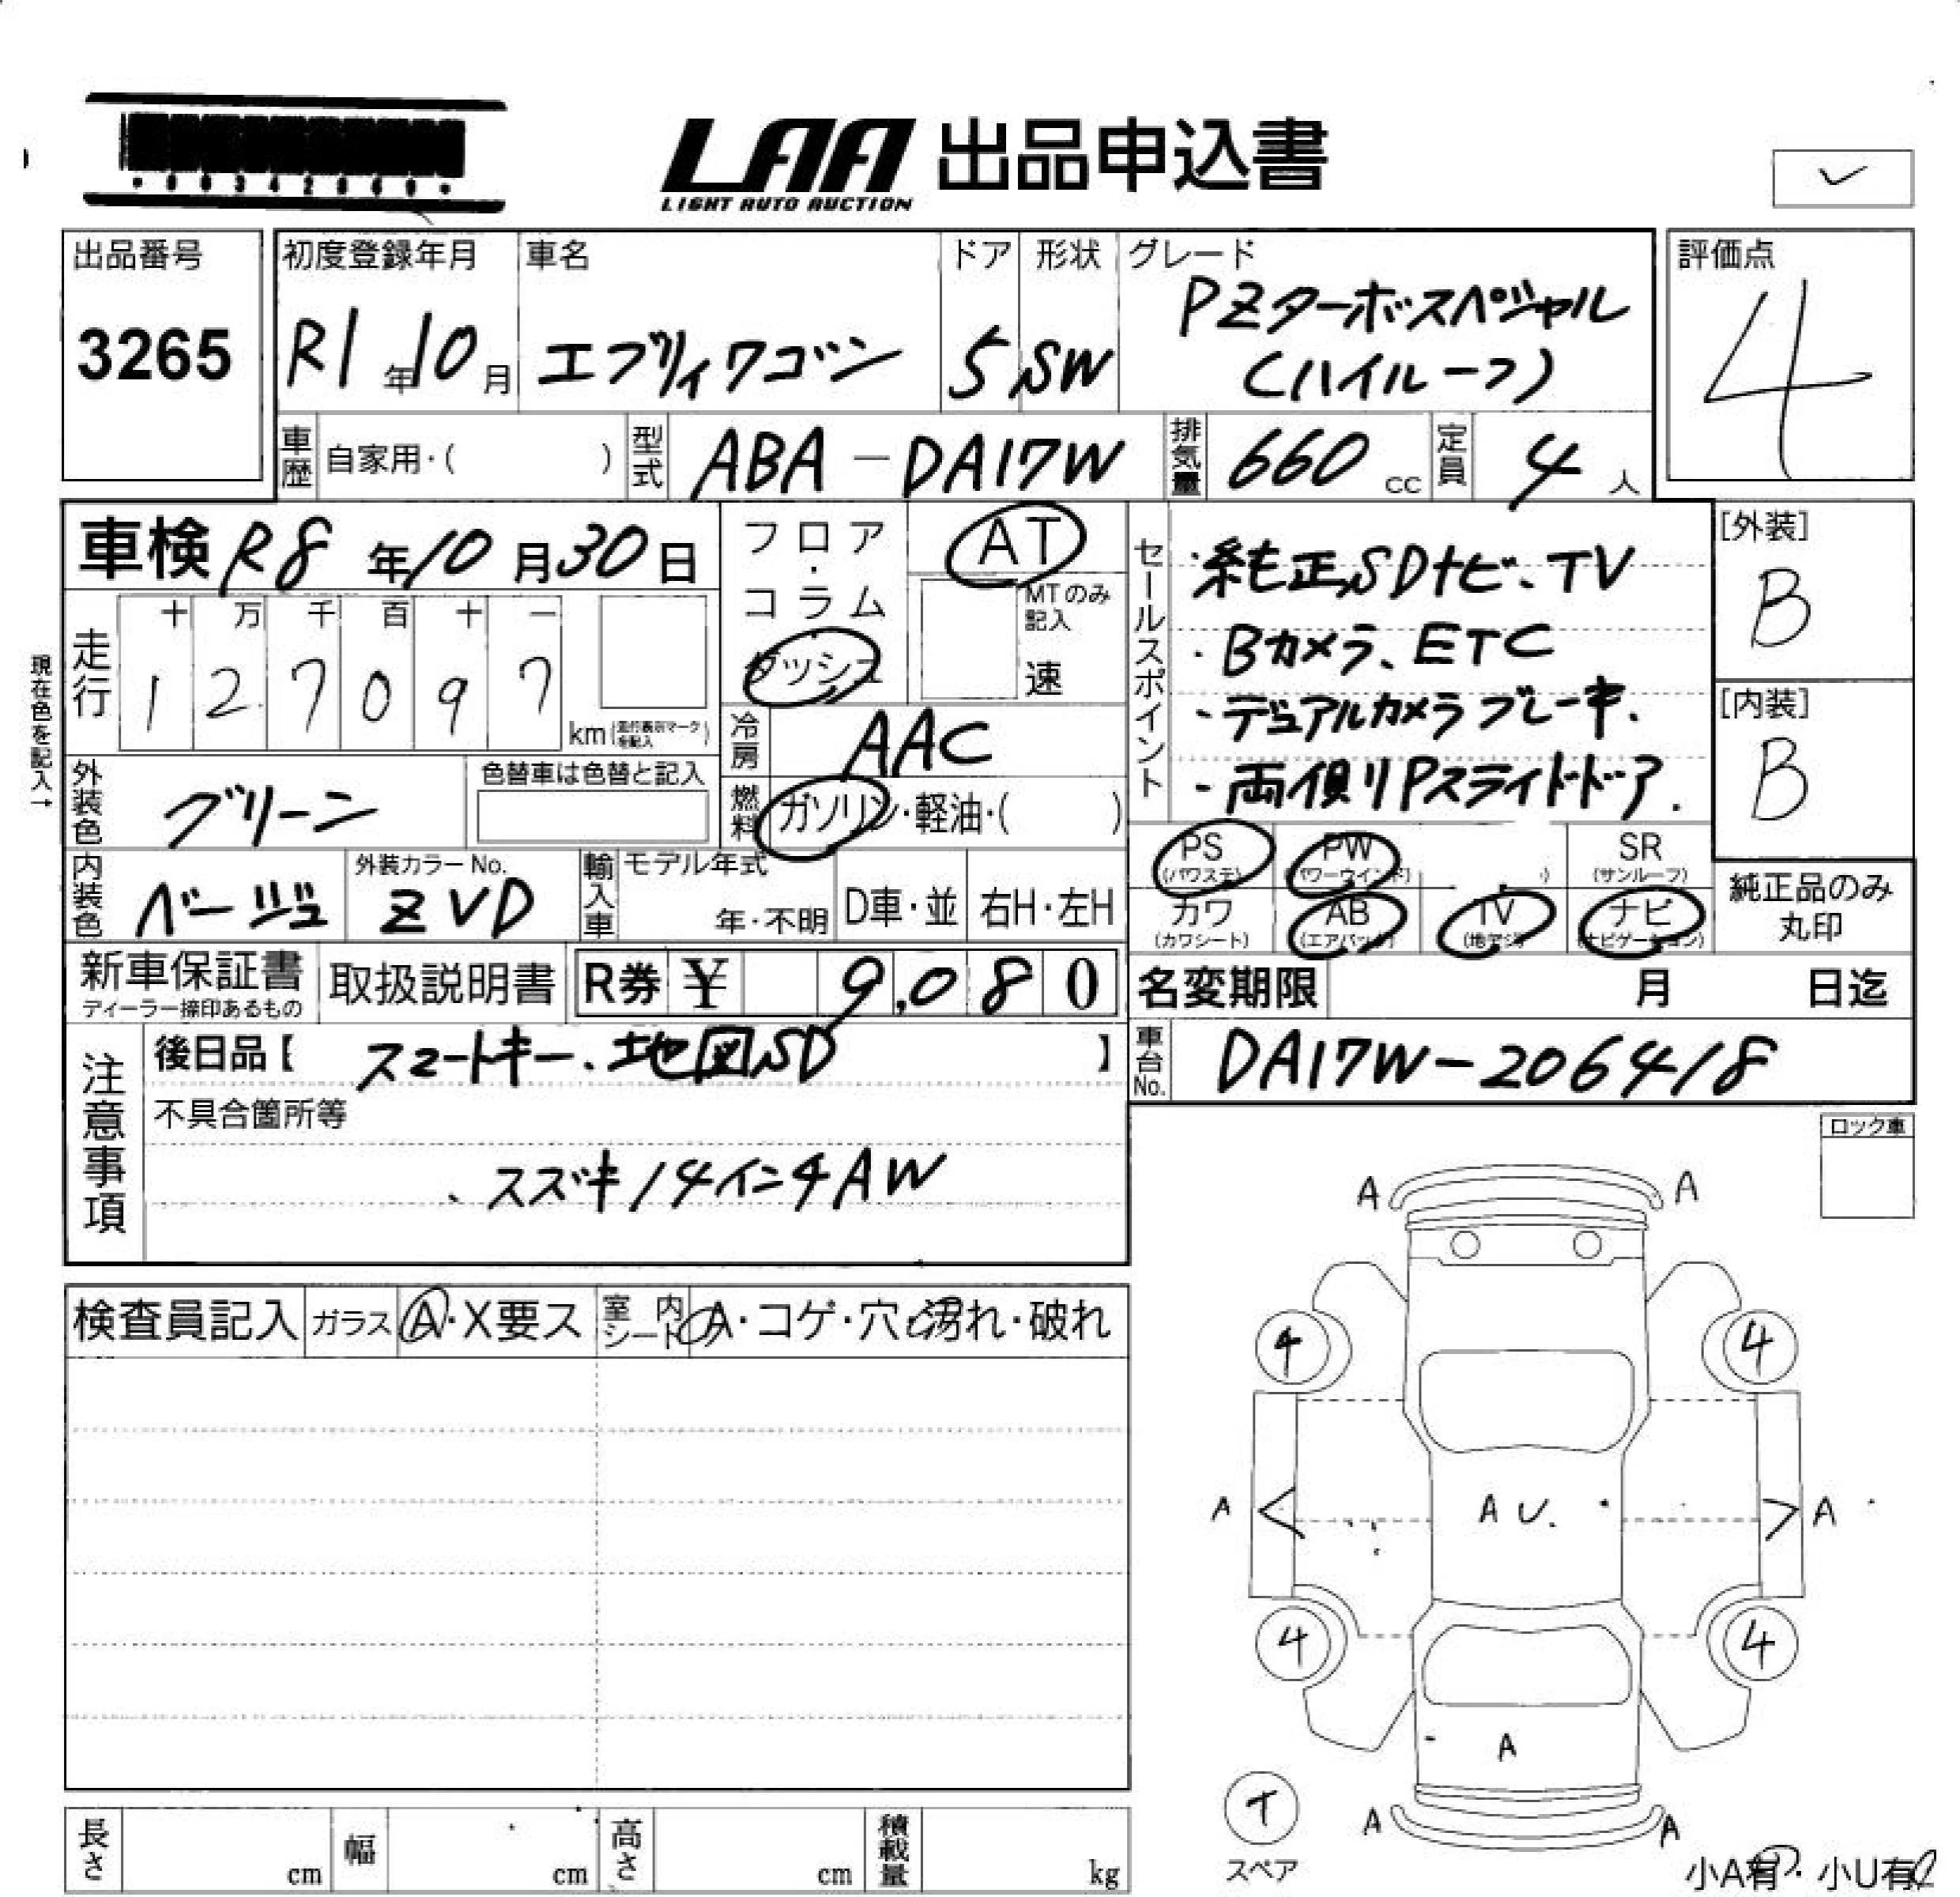 LAA 出品申込書
LIGHT AUTO AUCTION
出品番号
3265
初度登録年月
R1年10月
車名
エブリィワゴン
ドア
5
形状
SW
グレード
PZターボスペシャル
(ハイルーフ)
評価点
4
車歴 自家用・( )
型式 ABA-DA17W
排気量 660 cc
定員 4 人
車検 R8年10月30日
フロア・コラム
ダッシュ
AT
MTのみ記入
速
セールスポイント
・純正SDナビ、TV
・Bカメラ、ETC
・デュアルカメラブレーキ.
・両側Pスライドドア.
[外装]
B
[内装]
B
現在色を記入→
走行
十 万 千 百 十 一
1 2 7 0 9 7
km(走行表示マークを記入)
冷房 AAC
外装色 グリーン
色替車は色替と記入
燃料 ガソリン・軽油・( )
内装色 ベージュ
外装カラーNo.
ZVD
輸入車
モデル年式
年・不明
D車・並
右H・左H
PS (パワステ)
PW (パワーウインド)
SR (サンルーフ)
カワ (カワシート)
AB (エアバッグ)
TV (地デジ)
ナビ (ナビゲーション)
純正品のみ
丸印
新車保証書
ディーラー捺印あるもの
取扱説明書
R券 ¥ 9,080
名変期限 月 日迄
注意事項
後日品【 スマートキー、地図SD 】
車台No. DA17W-206418
不具合箇所等
、スズキ14インチAW
ロック車
検査員記入
ガラス A・X要ス
室内シート A・コゲ・穴・汚れ・破れ
A A
4 4
A A U. A
4 4
A
A A
T
スペア
小A有・小U有
長さ cm
幅 cm
高さ cm
積載量 kg